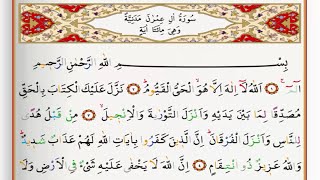 سُورَةُ اٰلِ عِمْرٰنَ مَدَنِيَّةٌ
وَهِىَ مِائَتَا اٰيَةٍ
بِسْمِ اللّٰهِ الرَّحْمٰنِ الرَّحِيمِ
الٓمٓ ۚ ۝ اَللّٰهُ لَٓا اِلٰهَ اِلَّا هُوَۙ الْحَىُّ الْقَيُّومُۜ ۝ نَزَّلَ عَلَيْكَ الْكِتَابَ بِالْحَقِّ
مُصَدِّقًا لِمَا بَيْنَ يَدَيْهِ وَاَنْزَلَ التَّوْرٰيةَ وَالْاِنْج۪يلَۙ ۝ مِنْ قَبْلُ هُدًى
لِلنَّاسِ وَاَنْزَلَ الْفُرْقَانَۜ اِنَّ الَّذ۪ينَ كَفَرُوا بِاٰيَاتِ اللّٰهِ لَهُمْ عَذَابٌ شَد۪يدٌۜ
وَاللّٰهُ عَز۪يزٌ ذُو انْتِقَامٍۜ ۝ اِنَّ اللّٰهَ لَا يَخْفٰى عَلَيْهِ شَىْءٌ فِى الْاَرْضِ وَلَا